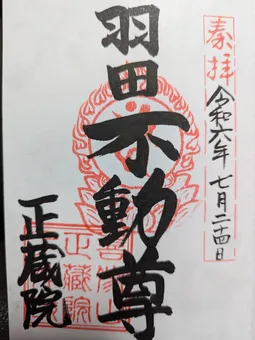 奉拝
令和六年七月二十四日
羽田不動尊
正蔵院
正藏院